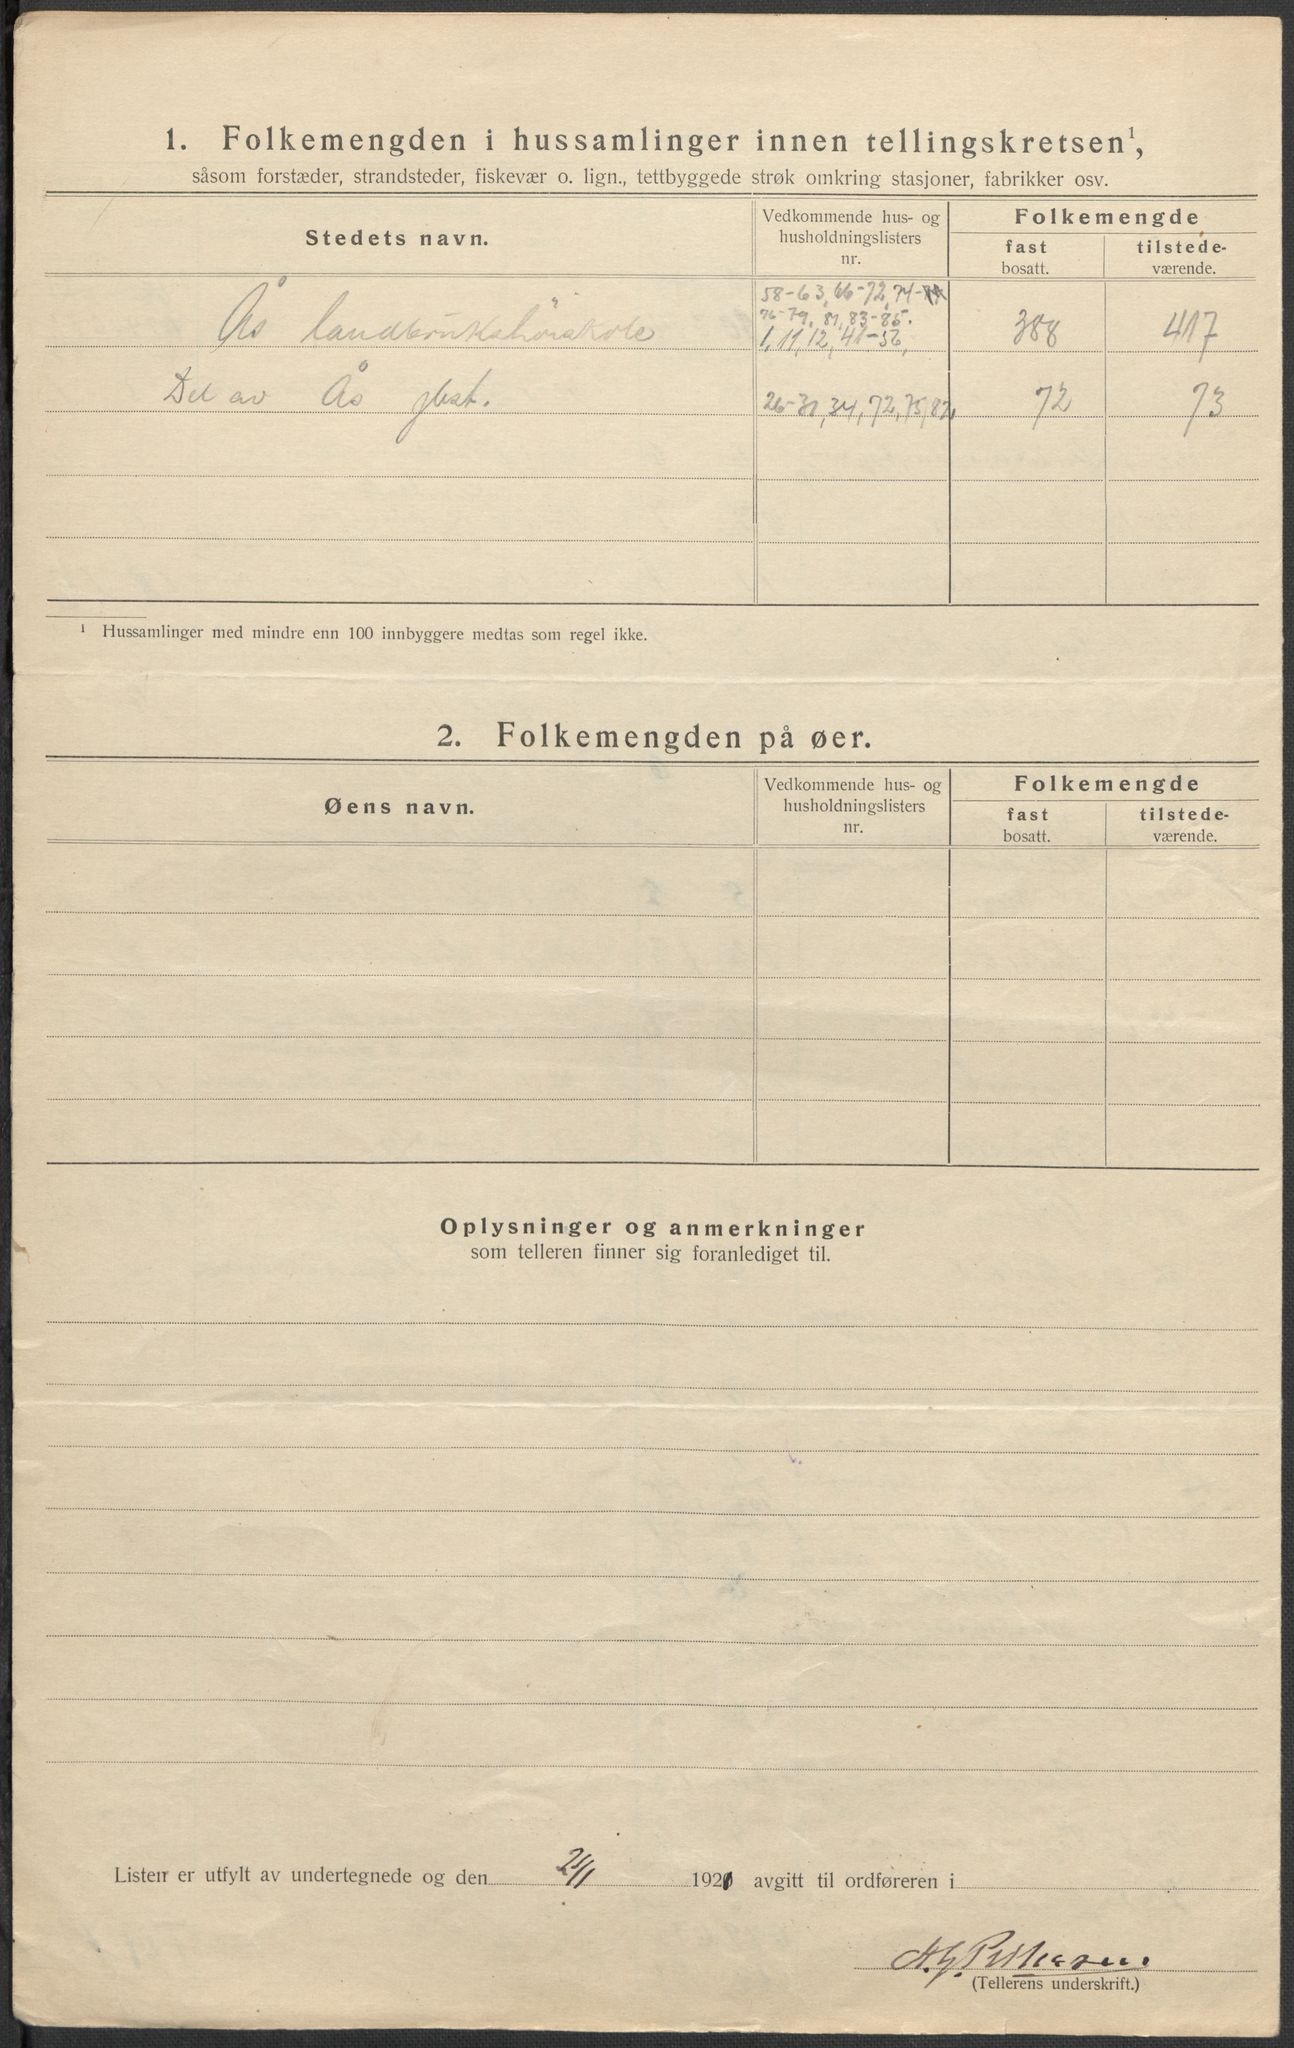 1. Folkemengden i hussamlinger innen tellingskretsen¹,
såsom forstæder, strandsteder, fiskevær o. lign., tettbyggede strøk omkring stasjoner, fabrikker osv.
Stedets navn.
Vedkommende hus- og
husholdningslisters
nr.
Folkemengde
fast
bosatt.
tilstede-
værende.
Ås landbrukshöiskole
58-63, 66-72, 74-
76-79, 81, 83-85.
1, 11, 12, 41-56,
388
417
Del av Ås jbst.
26-31, 34, 72, 75, 82
72
73
¹ Hussamlinger med mindre enn 100 innbyggere medtas som regel ikke.
2. Folkemengden på øer.
Øens navn.
Vedkommende hus- og
husholdningslisters
nr.
Folkemengde
fast
bosatt.
tilstede-
værende.
Oplysninger og anmerkninger
som telleren finner sig foranlediget til.
Listen er utfylt av undertegnede og den 21/1 1921 avgitt til ordføreren i
(Tellerens underskrift.)